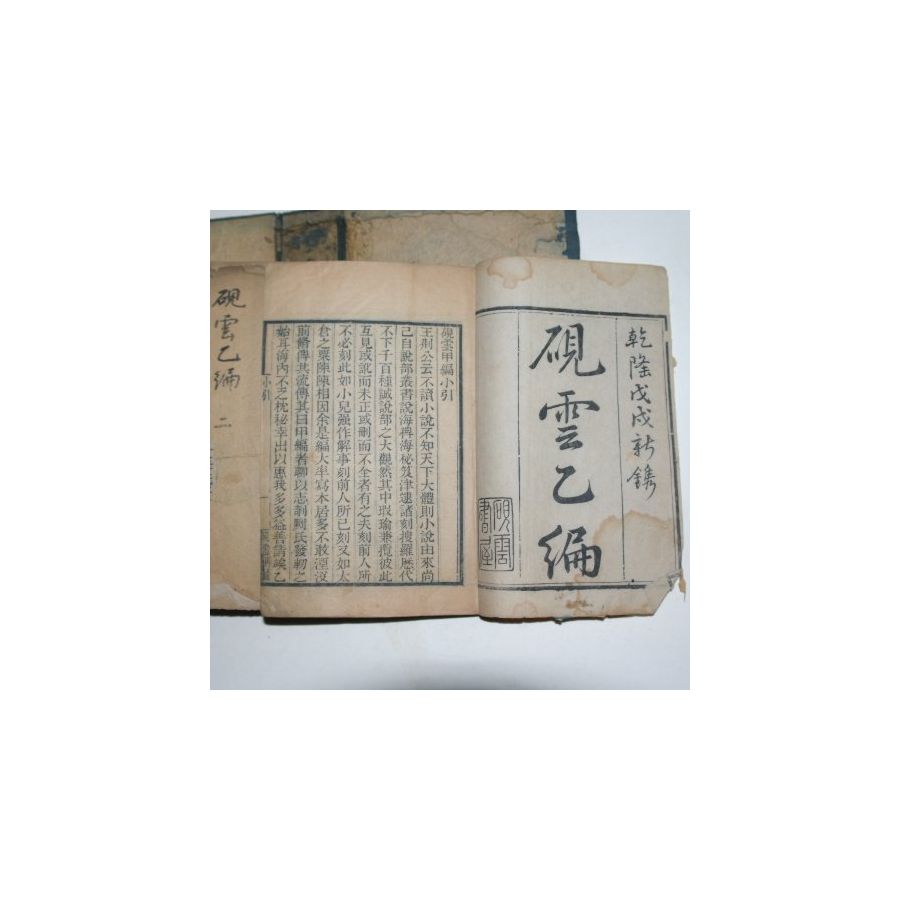 乾隆戊戌新鐫
硯雲乙編
硯雲書屋
硯雲甲編小引
王荆公云不讀小說不知天下大體則小說由來尚
已自說部叢書說海稗海秘笈津逮諸刻搜羅歷代
不下千百種誠說部之大觀然其中瑕瑜兼攬彼此
互見或訛而未正或刪而不全者有之夫刻前人所
不必刻此如小兒强作解事刻前人所已刻又如太
倉之粟陳陳相因余是編大率寫本居多不敢湮沒
前脩傳其流傳其曰甲編者聊以志剞劂氏發軔之
始耳海內不乏枕秘幸出以惠我多多益善請俟乙
小引
一
硯雲乙編 二